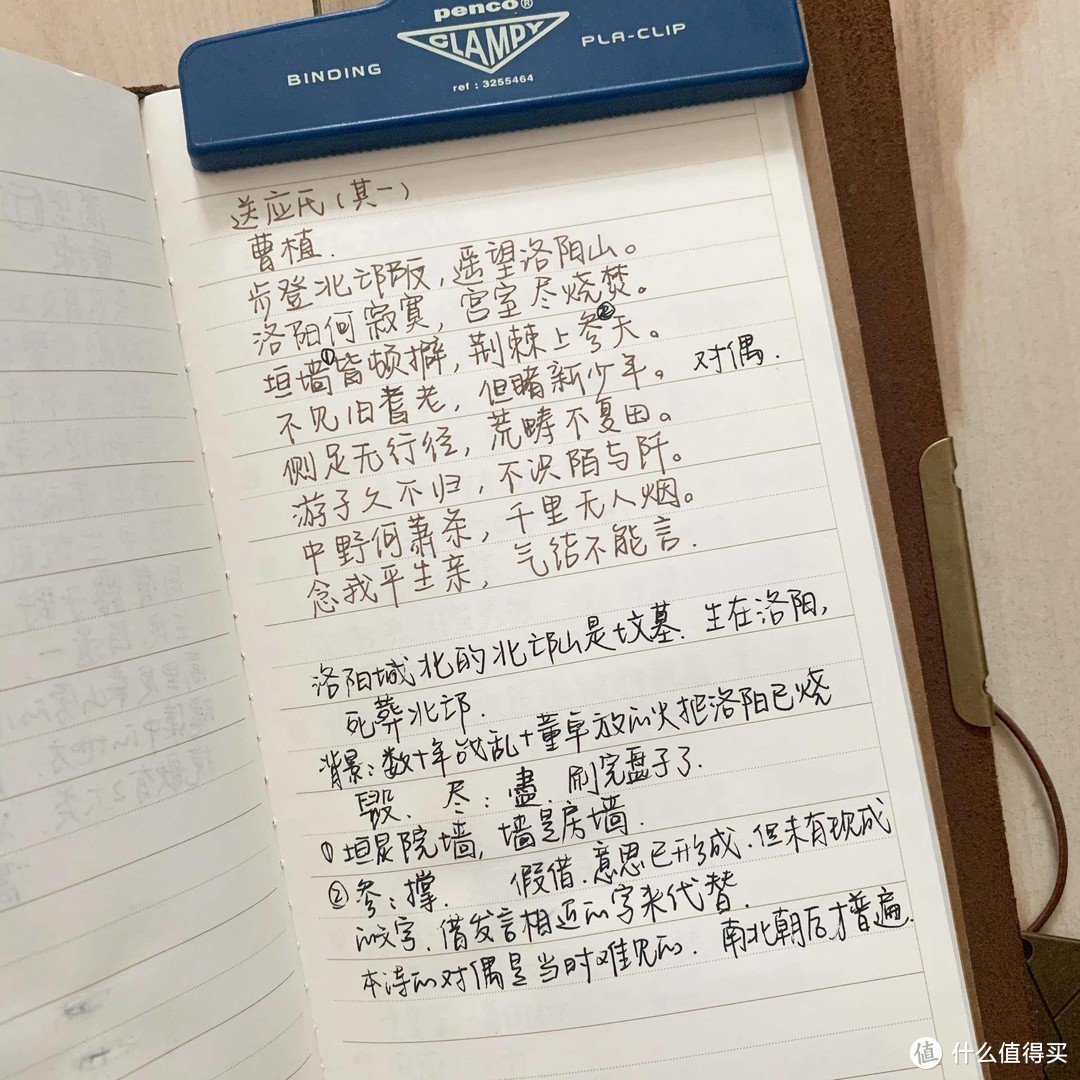 penco®
CLAMPY
BINDING
PLA-CLIP
ref : 3255464
送应氏（其一）
曹植.
步登北邙阪，遥望洛阳山。
洛阳何寂寞，宫室尽烧焚。
垣墙①皆顿擗，荆棘上参②天。
不见旧耆老，但睹新少年。 对偶.
侧足无行径，荒畴不复田。
游子久不归，不识陌与阡。
中野何萧条，千里无人烟。
念我平生亲，气结不能言.
洛阳城北的北邙山是坟墓. 生在洛阳，
死葬北邙.
背景：数十年战乱+董卓放的火把洛阳已烧
毁. 尽：盡. 刷完盘子了.
①垣是院墙，墙是房墙.
②参：撑. 假借.意思已形成.但未有现成
的文字.借发言相近的字来代替.
本诗的对偶是当时难见的. 南北朝后才普遍.
值 什么值得买